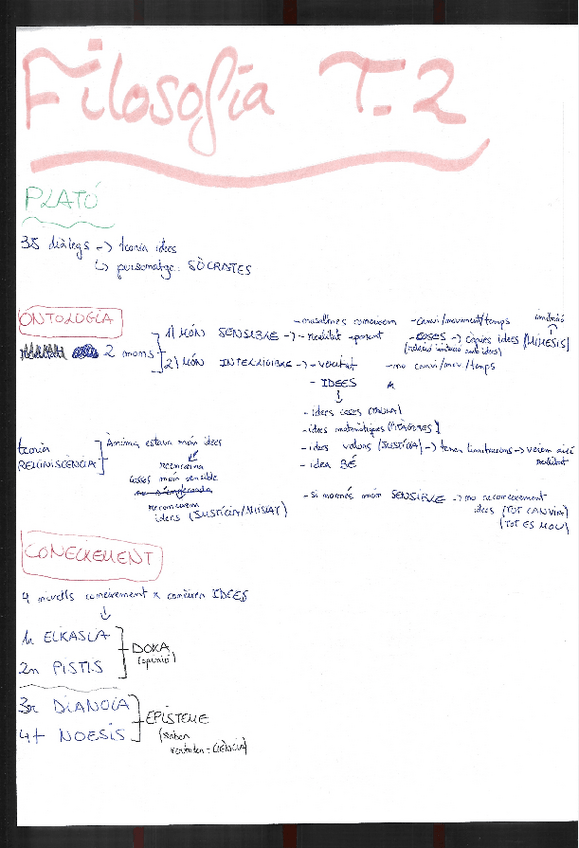 Filosofia T.2
PLATÓ
35 diàlegs -> teoria idees
↳ personatge: SÒCRATES
ONTOLOGIA
2 mons
1) MÓN SENSIBLE -> - realitat aparent
- nosaltres coneixem
- canvi/moviment/temps
- COSES -> còpies idees (MIMESIS)
imitació
(relació imitació amb idees)
2) MÓN INTEL·LIGIBLE -> - veritat
- no canvi/mov/temps
- IDEES
- idees coses (TAULA)
- idees matemàtiques (PITÀGORES)
- idees valors (JUSTÍCIA) -> tenen limitacions -> veiem així realitat
- idea BÉ
teoria REMINISCÈNCIA
Ànima estava món idees
reencarna
coses món sensible
reconeixem
idees (JUSTÍCIA/
- si només món SENSIBLE -> no reconeixement
idees (TOT CANVIA)
(TOT ES MOU)
CONEIXEMENT
4 nivells coneixement x conèixer IDEES
1r EIKASIA
2n PISTIS
DOXA
(opinió)
3er DIANOIA
4t NOESIS
EPISTEME
(saber
vertader = CIÈNCIA)